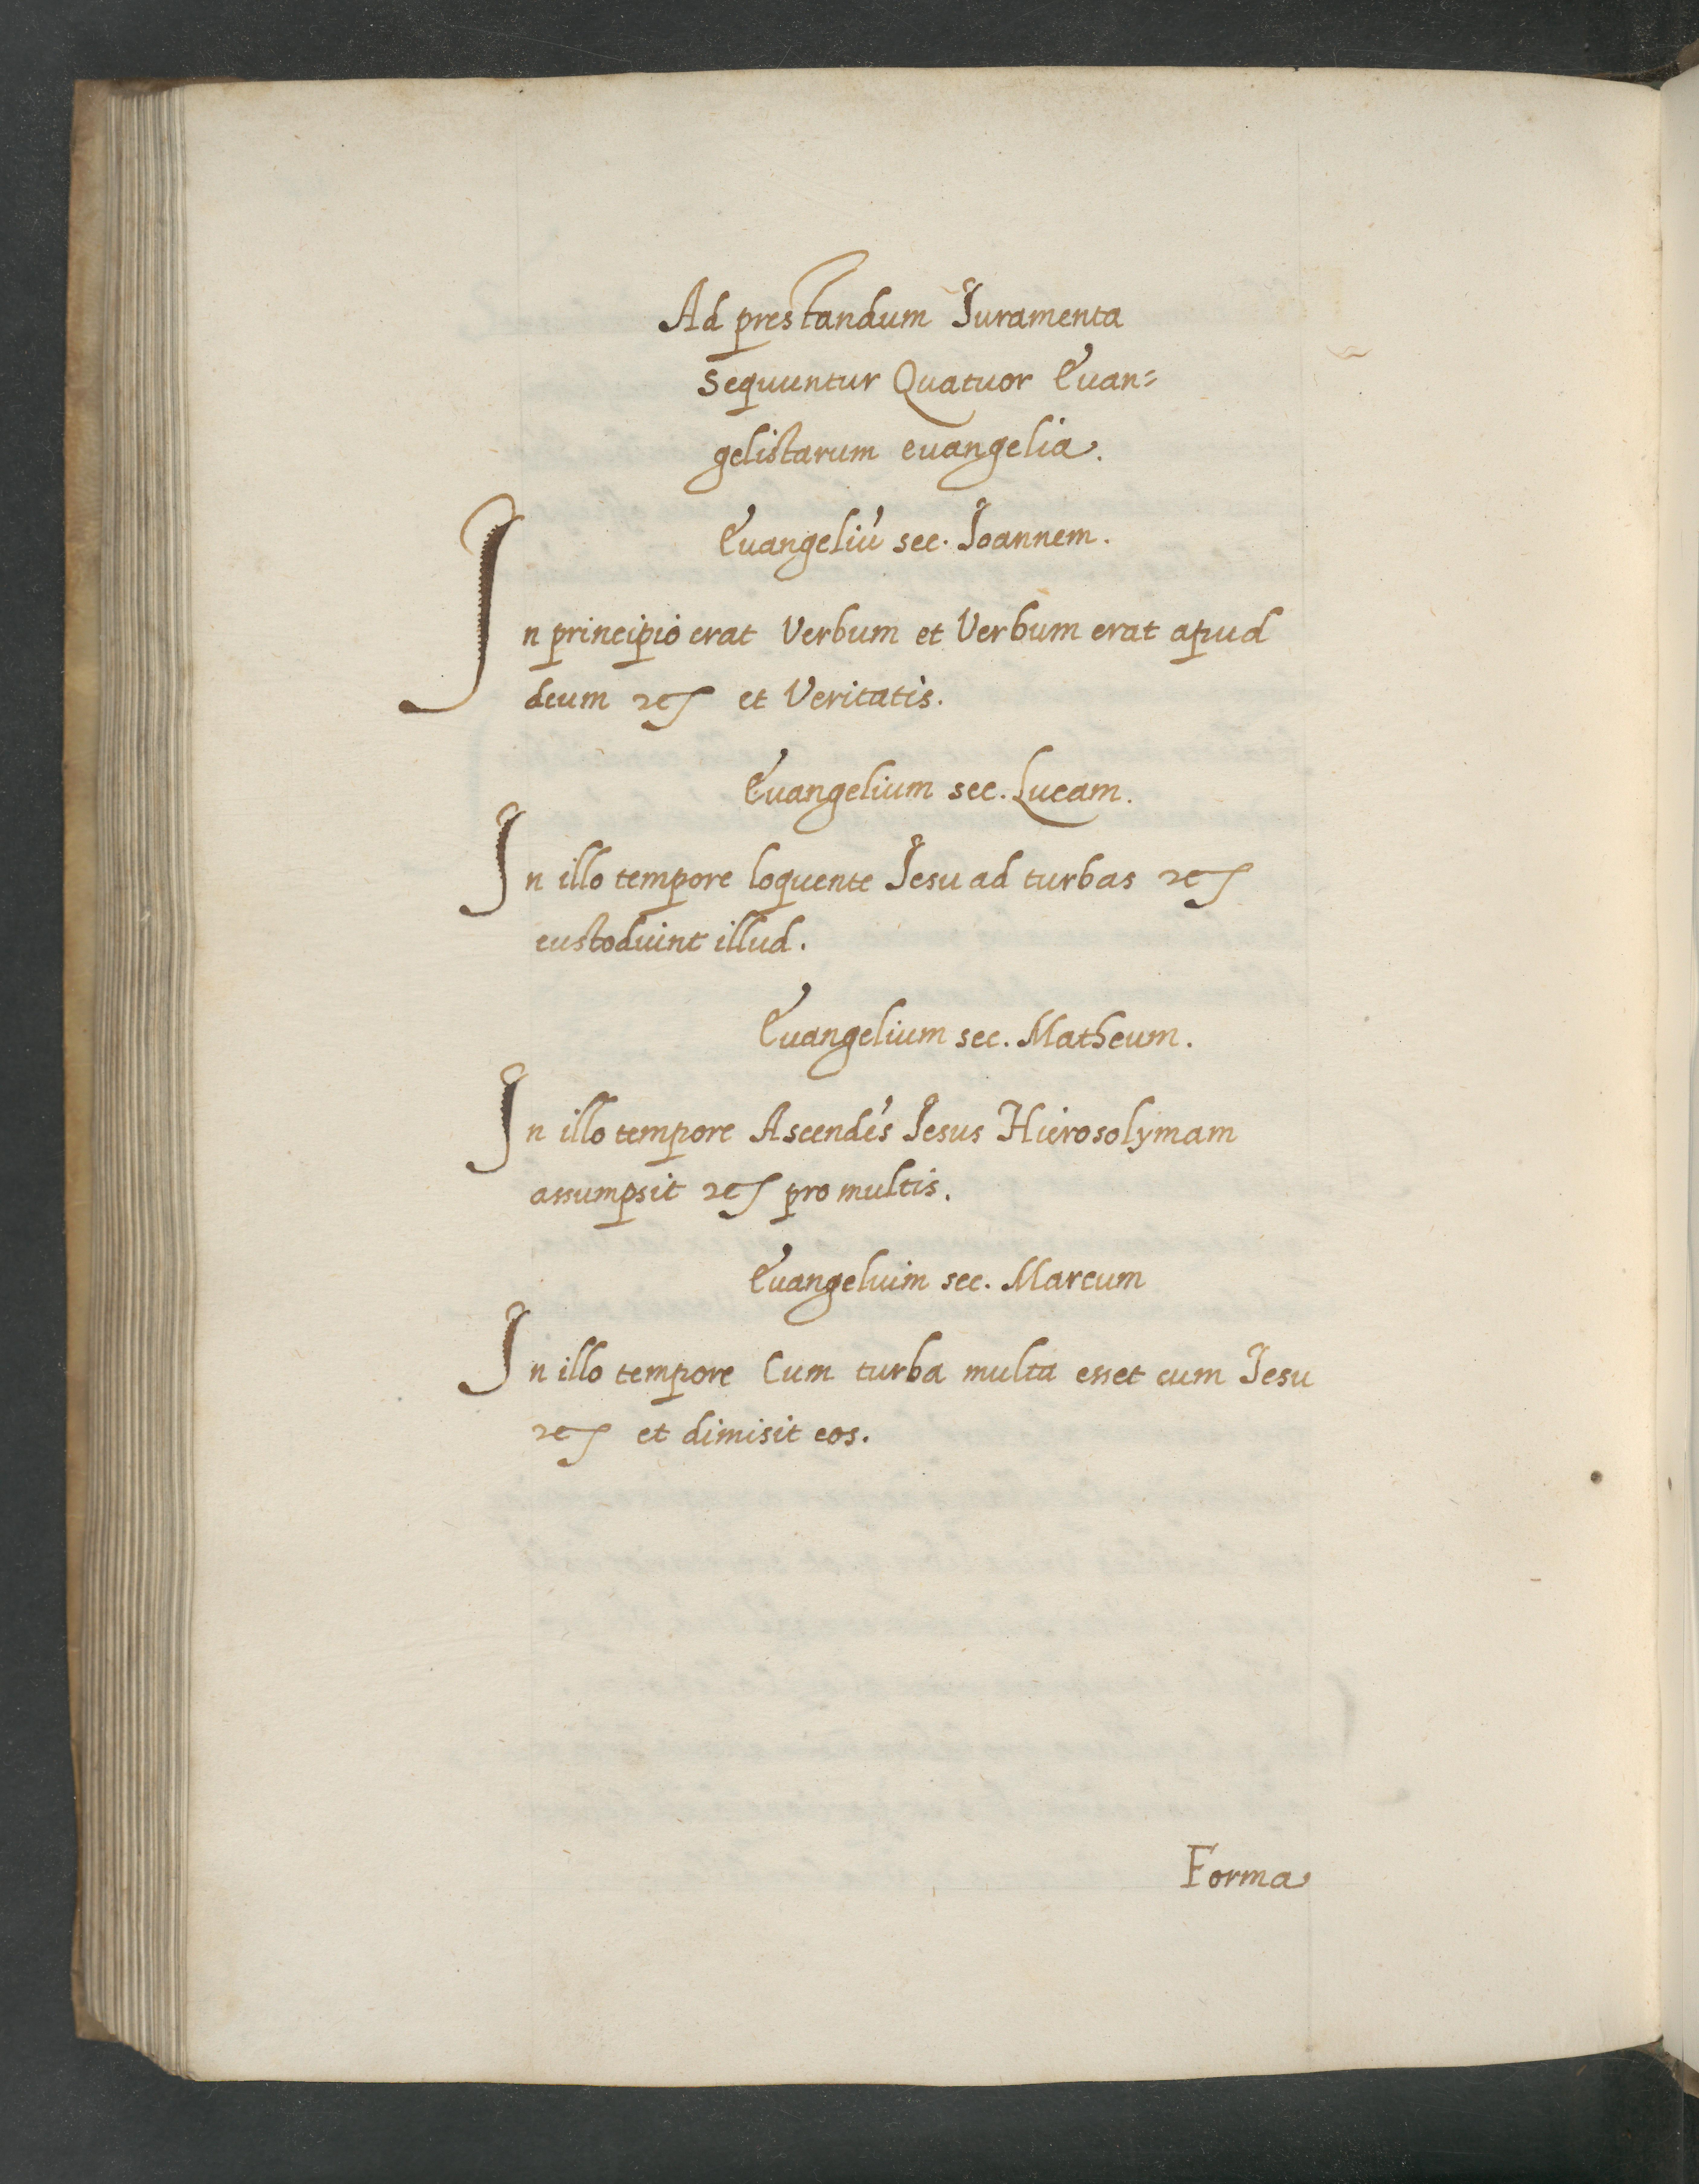 Ad prestandum Iuramenta
sequuntur Quatuor Euan=
gelistarum euangelia.
Euangeliū sec. Ioannem.
In principio erat Verbum et Verbum erat apud
deum ⁊c̃ et Veritatis.
Euangelium sec. Lucam.
In illo tempore loquente Iesu ad turbas ⁊c̃
custoduint illud.
Euangelium sec. Matheum.
In illo tempore Ascendēs Iesus Hierosolymam
assumpsit ⁊c̃ pro multis.
Euangeluim sec. Marcum
In illo tempore Cum turba multa esset cum Iesu
⁊c̃ et dimisit eos.
Forma